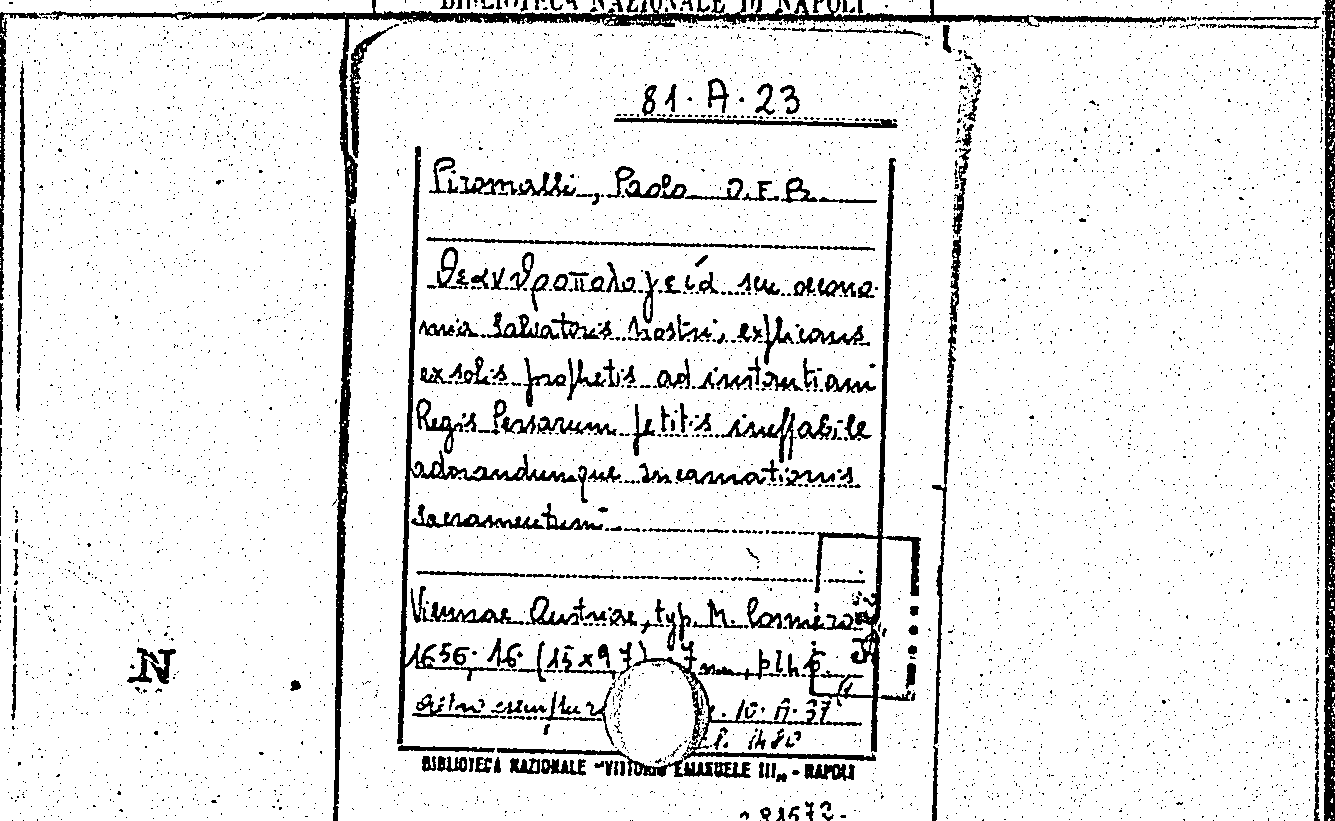 BIBLIOTECA NAZIONALE DI NAPOLI
81. A. 23
Piromalli, Paolo O.F.P.
θεανθροπολογεία seu œcono-
mia Salvatoris Nostri, explicans
ex solis prophetis ad instantiam
Regis Persarum petitis ineffabile
adorandumque Incarnationis
Sacramentum
Viennae Austriae, typ. M. Cosmero
1656. 16. (15x9,7)
altro esemplare 10. A. 37
BIBLIOTECA NAZIONALE "VITTORIO EMANUELE III„ - NAPOLI
N